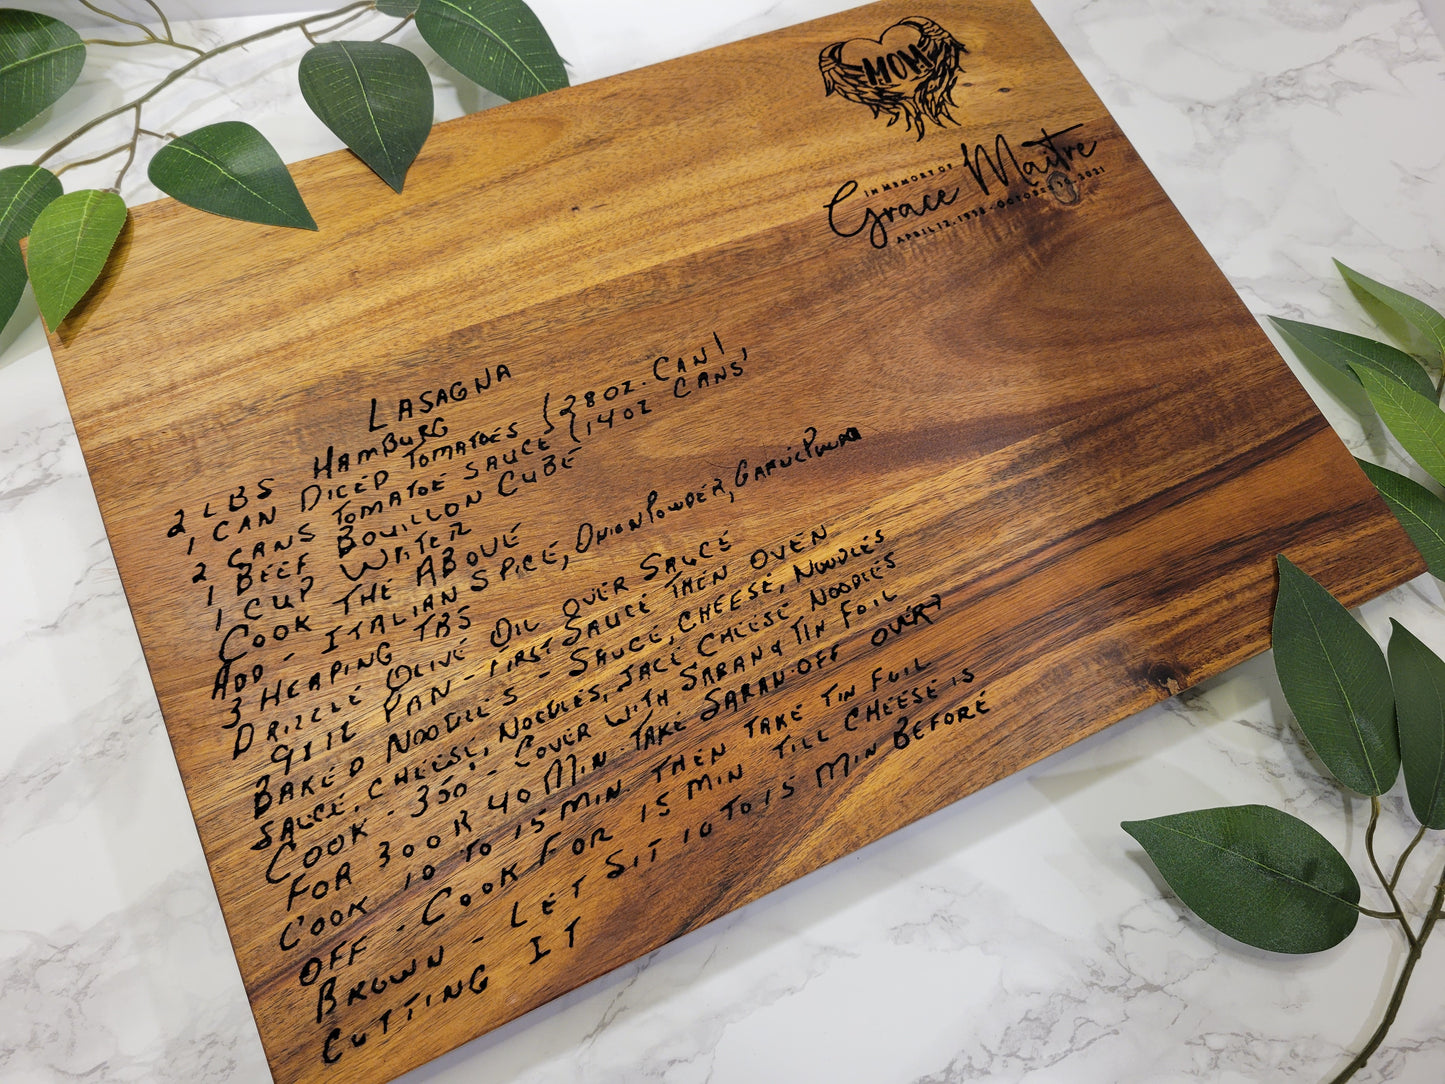 MOM
IN MEMORY OF
Grace Maitre
APRIL 12, 1938 - OCTOBER 2021
LASAGNA
2 LBS HAMBURG
1 CAN DICED TOMATOES (28 OZ. CAN)
2 CANS TOMATOE SAUCE (14 OZ CANS)
1 BEEF BOUILLON CUBE
1 CUP WATER
COOK THE ABOVE
ADD - ITALIAN SPICE, ONION POWDER, GARLIC POWDER
3 HEAPING TBS
DRIZZLE OLIVE OIL OVER SAUCE
9X12 PAN - FIRST SAUCE THEN OVEN
BAKED NOODLES - SAUCE, CHEESE, NOODLES
SAUCE, CHEESE, NOODLES, SAUCE CHEESE NOODLES
COOK - 350° - COVER WITH SARAN & TIN FOIL
FOR 30 OR 40 MIN. TAKE SARAN OFF OVER
COOK 10 TO 15 MIN. THEN TAKE TIN FOIL
OFF - COOK FOR 15 MIN TILL CHEESE IS
BROWN - LET SIT 10 TO 15 MIN BEFORE
CUTTING IT